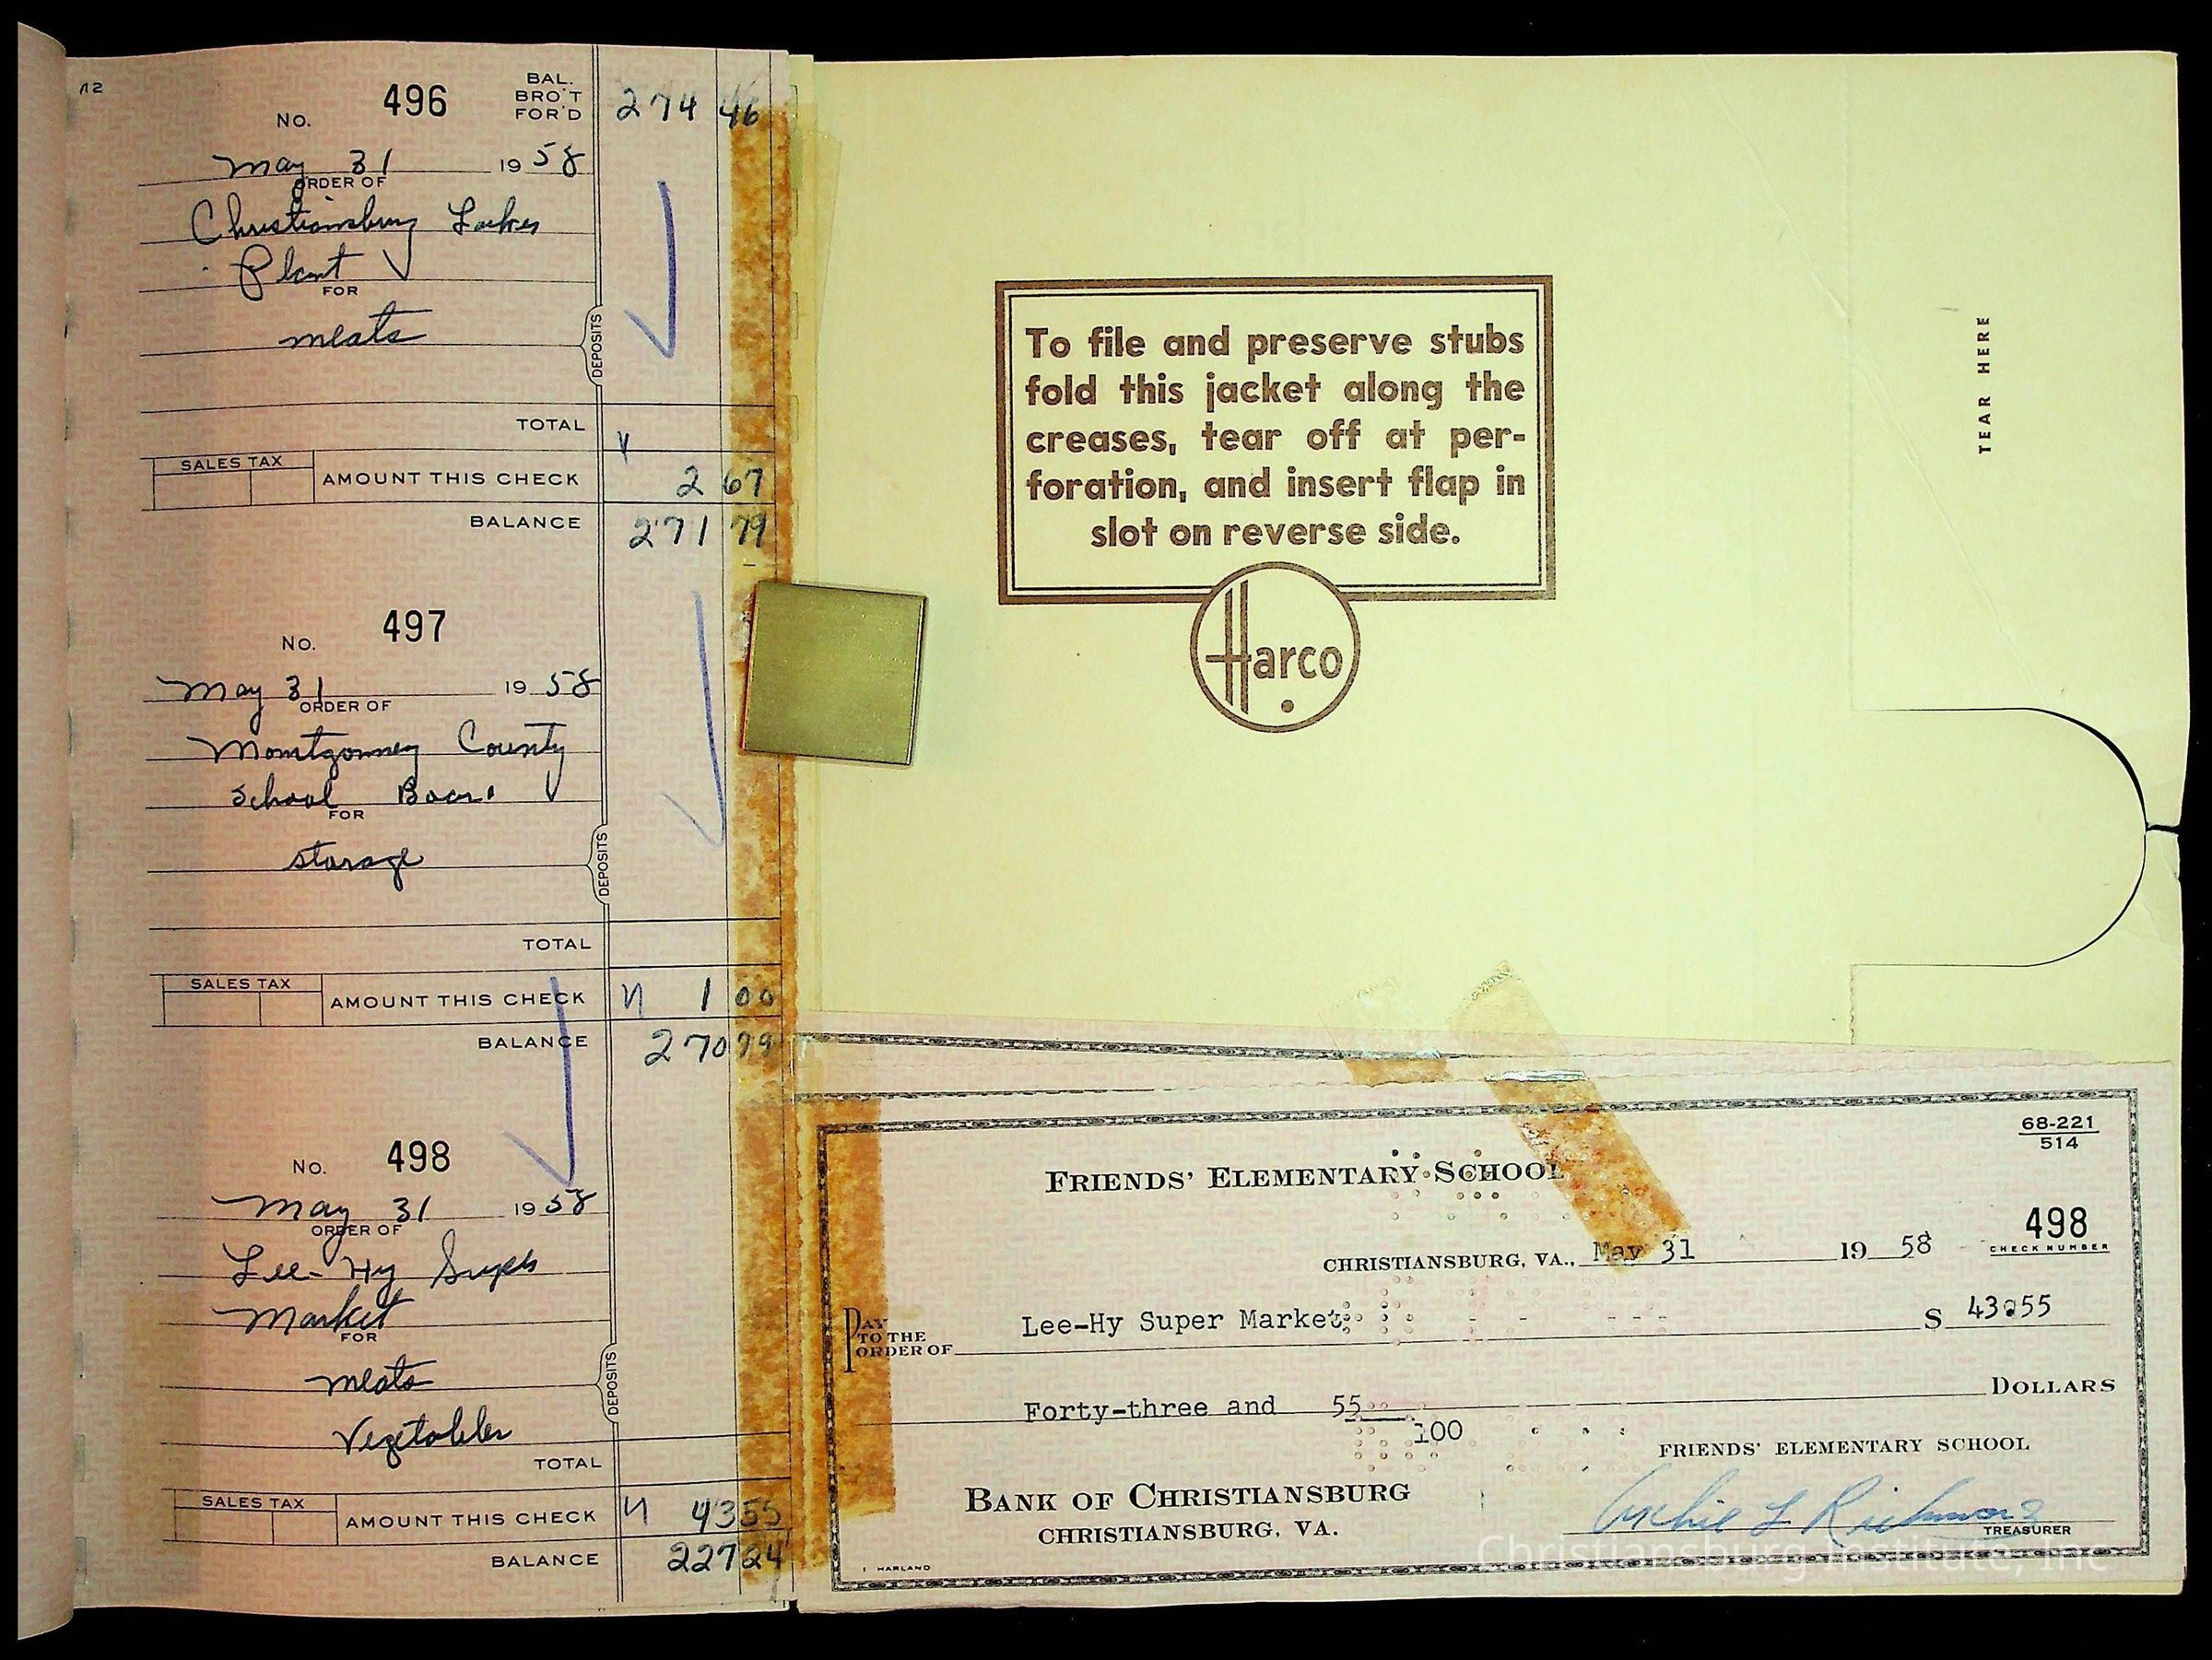 No. 496 BAL. BRO'T FOR'D 274 46
May 31 19 58
ORDER OF
Christiansburg Locker
Plant
FOR
meats
DEPOSITS
TOTAL
SALES TAX AMOUNT THIS CHECK 2 67
BALANCE 271 79
No. 497
May 31 19 58
ORDER OF
Montgomery County
School Board
FOR
storage
DEPOSITS
TOTAL
SALES TAX AMOUNT THIS CHECK 1 00
BALANCE 270 79
No. 498
May 31 19 58
ORDER OF
Lee-Hy Super
Market
FOR
meats
Vegetables
DEPOSITS
TOTAL
SALES TAX AMOUNT THIS CHECK 43 55
BALANCE 227 24
To file and preserve stubs
fold this jacket along the
creases, tear off at per-
foration, and insert flap in
slot on reverse side.
Harco
TEAR HERE
68-221
514
FRIENDS' ELEMENTARY SCHOOL
498
CHECK NUMBER
CHRISTIANSBURG, VA., May 31 19 58
PAY TO THE ORDER OF Lee-Hy Super Market $ 43.55
Forty-three and 55/100 DOLLARS
FRIENDS' ELEMENTARY SCHOOL
BANK OF CHRISTIANSBURG
CHRISTIANSBURG, VA.
Archie L Richmond
TREASURER
HARLAND
Christiansburg Institute, Inc